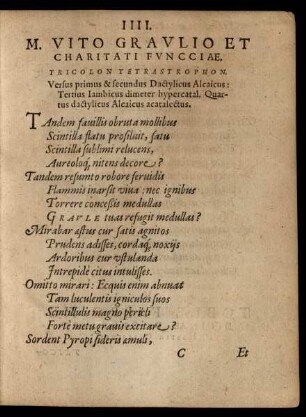 IIII.
M. VITO GRAVLIO ET
CHARITATI FVNCCIAE.
TRICOLON TETRASTROPHON.
Versus primus & secundus Dactylicus Alcaicus:
Tertius Iambicus dimeter hypercatal. Quar-
tus dactylicus Alcaicus acatalectus.
TAndem fauillis obruta mollibus
Scintilla flatu prosiluit, satu
Scintilla sublimi relucens,
Aureoloq; nitens decore?
Tandem resumto robore feruidis
Flammis inarsit viua: nec ignibus
Torrere concessis medullas
GRAVLE tuas refugit medullas?
Mirabar astus cur satis agnitos
Prudens adisses, cordaq; noxijs
Ardoribus cur vstulanda
Intrepidè citus intulisses.
Omitto mirari: Ecquis enim abnuat
Tam luculentis igniculos suos
Scintillulis magno pericli
Forte metu grauis excitare?
Sordent Pyropi siderii æmuli,
C Et